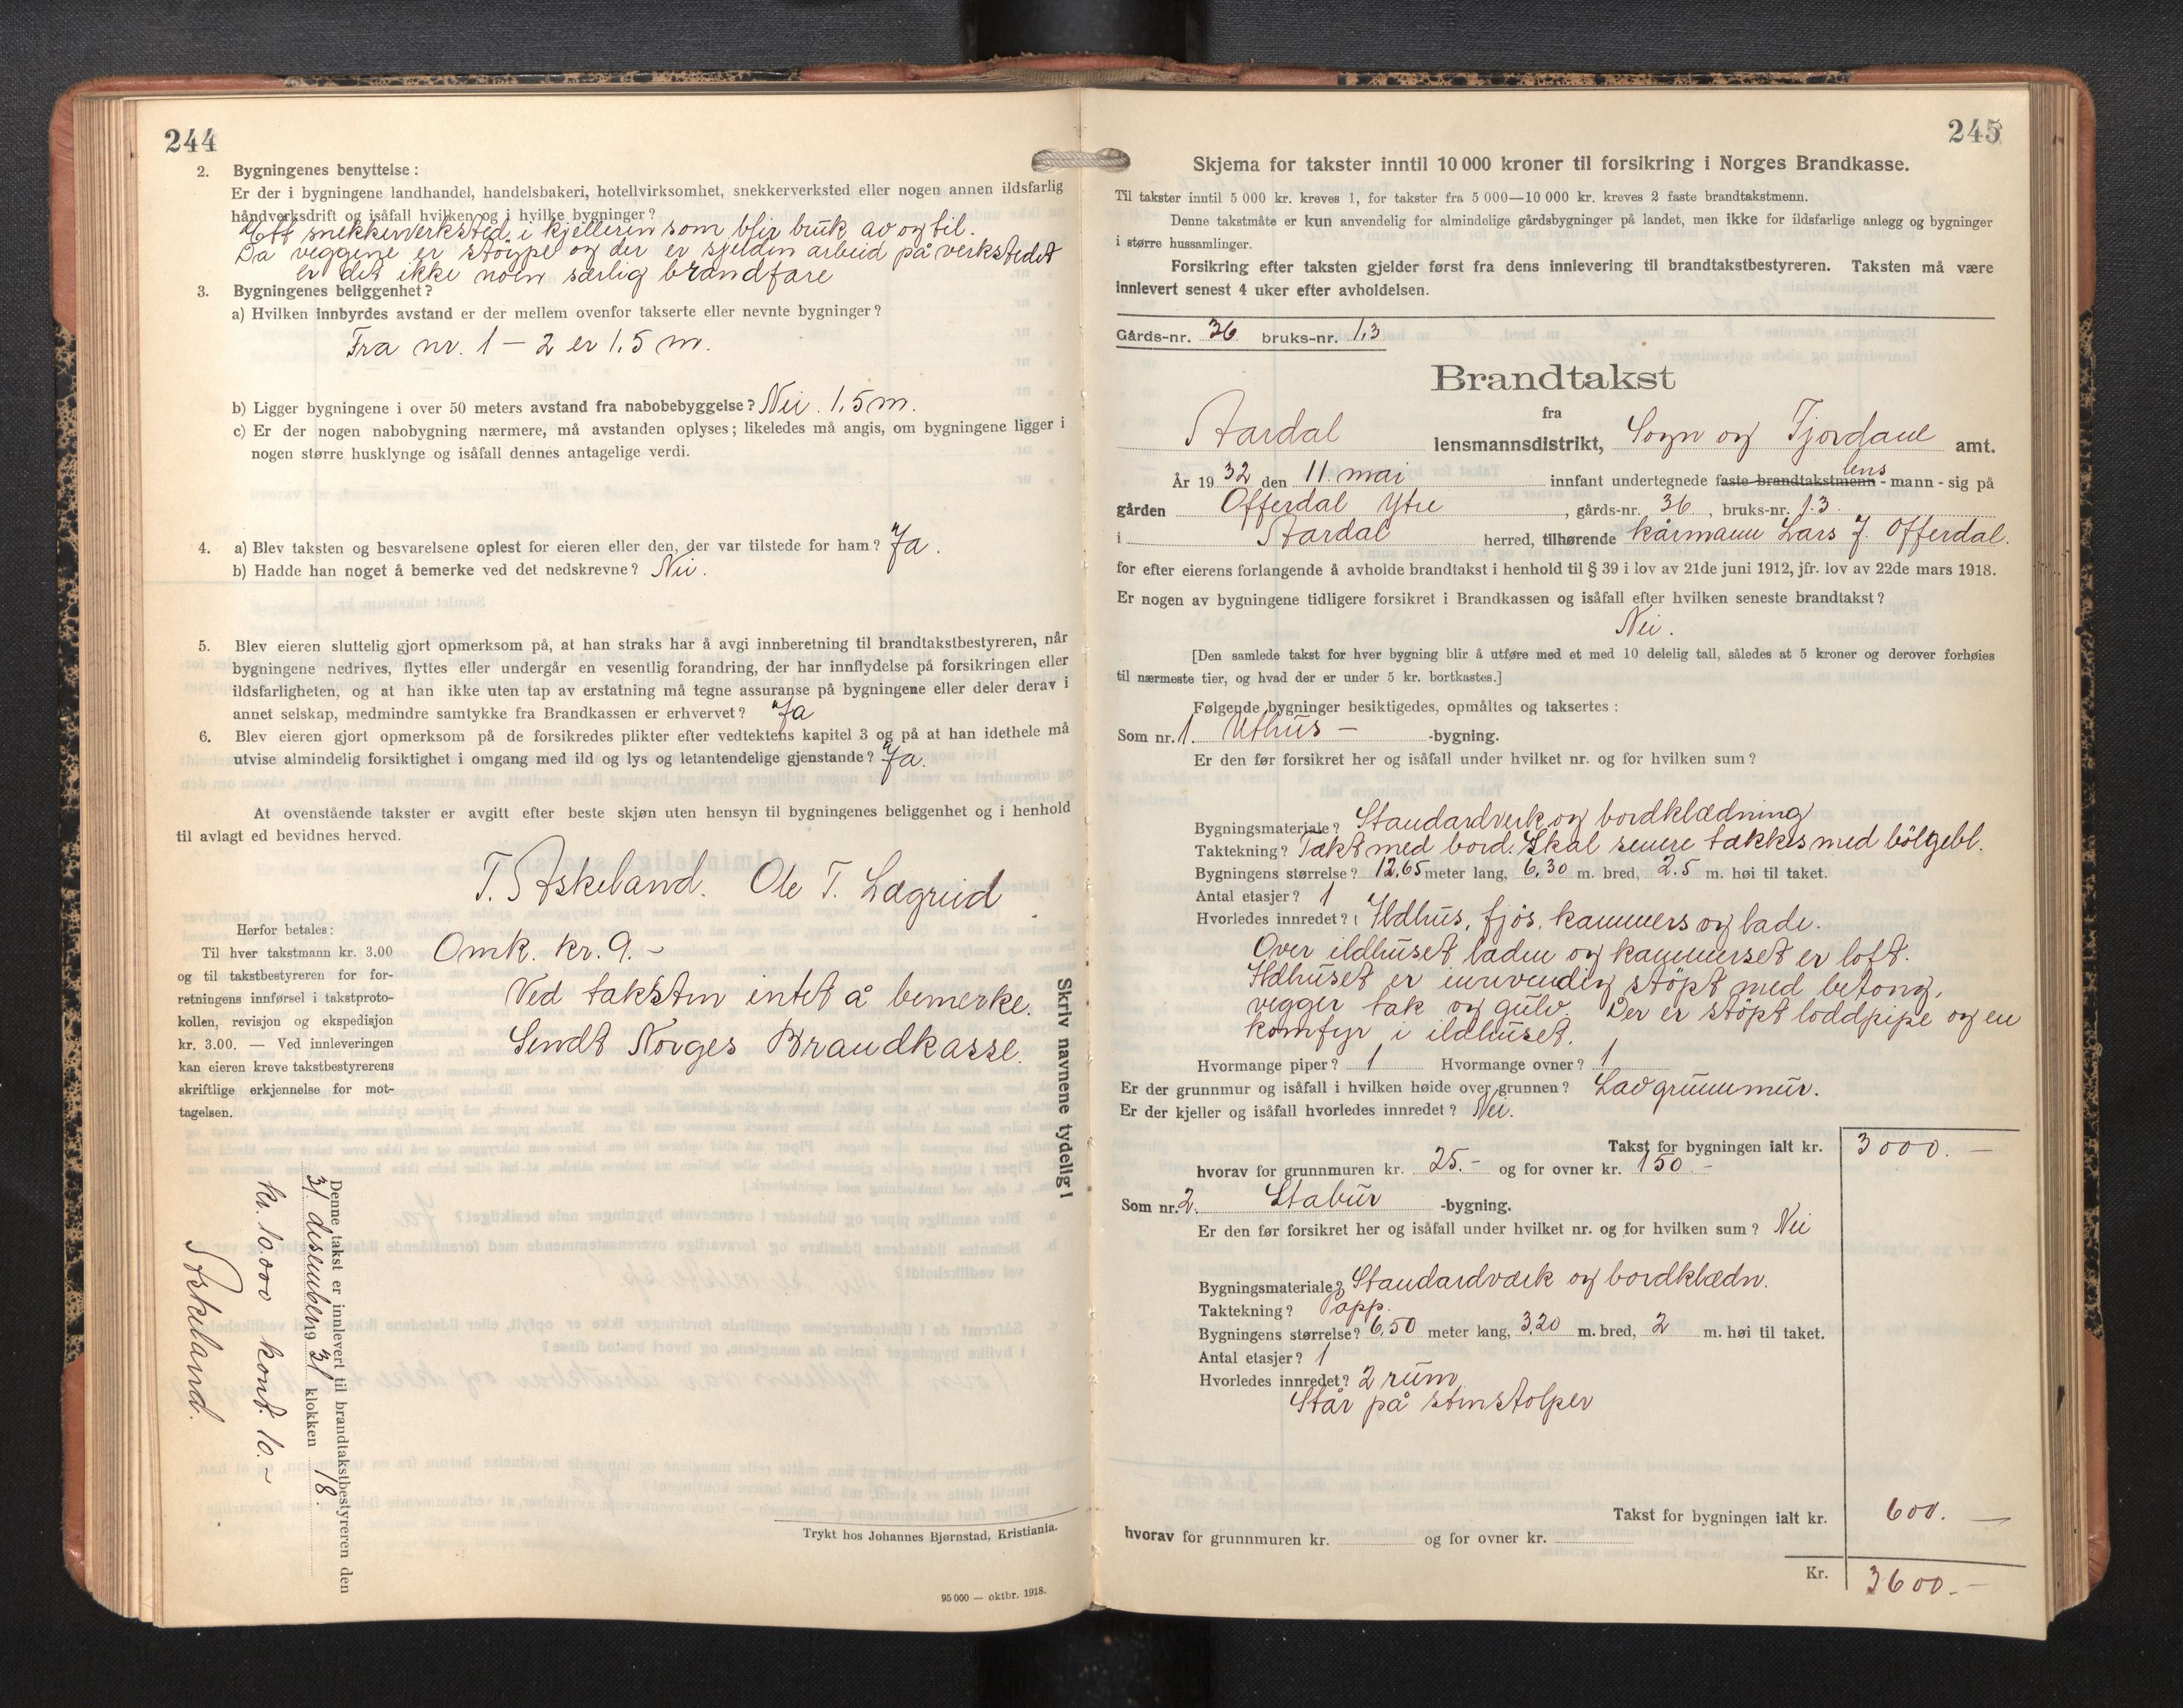 244
2. Bygningenes benyttelse :
Er der i bygningene landhandel, handelsbakeri, hotellvirksomhet, snekkerverksted eller nogen annen ildsfarlig
håndverksdrift og isåfall hvilken og i hvilke bygninger?
Ett snekkerverksted i kjelleren som blir bruk av og til.
Da veggene er støype og der er sjelden arbeid på verkstedet
er det ikke noen særlig brandfare
3. Bygningenes beliggenhet?
a) Hvilken innbyrdes avstand er der mellem ovenfor takserte eller nevnte bygninger?
Fra nr. 1 – 2 er 1,5 m.
b) Ligger bygningene i over 50 meters avstand fra nabobebyggelse? Nei. 1,5 m.
c) Er der nogen nabobygning nærmere, må avstanden oplyses; likeledes må angis, om bygningene ligger i
nogen større husklynge og isåfall dennes antagelige verdi.
4. a) Blev taksten og besvarelsene oplest for eieren eller den, der var tilstede for ham? Ja.
b) Hadde han noget å bemerke ved det nedskrevne? Nei.
5. Blev eieren sluttelig gjort opmerksom på, at han straks har å avgi innberetning til brandtakstbestyreren, når
bygningene nedrives, flyttes eller undergår en vesentlig forandring, der har innflydelse på forsikringen eller
ildsfarligheten, og at han ikke uten tap av erstatning må tegne assuranse på bygningene eller deler derav i
annet selskap, medmindre samtykke fra Brandkassen er erhvervet? Ja
6. Blev eieren gjort opmerksom på de forsikredes plikter efter vedtektens kapitel 3 og på at han idethele må
utvise almindelig forsiktighet i omgang med ild og lys og letantendelige gjenstande? Ja.
At ovenstående takster er avgitt efter beste skjøn uten hensyn til bygningenes beliggenhet og i henhold
til avlagt ed bevidnes herved.
T. Askeland. Ole T. Lægreid
Herfor betales:
Til hver takstmann kr. 3.00
og til takstbestyreren for for-
retningens innførsel i takstproto-
kollen, revisjon og ekspedisjon
kr. 3.00. — Ved innleveringen
kan eieren kreve takstbestyrerens
skriftlige erkjennelse for mot-
tagelsen.
Omk. kr. 9.-
Ved taksten intet å bemerke.
Sendt Norges Brandkasse.
Skriv navnene tydelig!
Denne takst er innlevert til brandtakstbestyreren den
31 desember 19 31 klokken 18.
kr. 10,000 kont. 10.-
Askeland.
Trykt hos Johannes Bjørnstad, Kristiania.
95 000 — oktbr. 1918.
245
Skjema for takster inntil 10 000 kroner til forsikring i Norges Brandkasse.
Til takster inntil 5 000 kr. kreves 1, for takster fra 5 000—10 000 kr. kreves 2 faste brandtakstmenn.
Denne takstmåte er kun anvendelig for almindelige gårdsbygninger på landet, men ikke for ildsfarlige anlegg og bygninger
i større hussamlinger.
Forsikring efter taksten gjelder først fra dens innlevering til brandtakstbestyreren. Taksten må være
innlevert senest 4 uker efter avholdelsen.
Gårds-nr. 36 bruks-nr. 1,3
Brandtakst
fra
Aardal lensmannsdistrikt, Sogn og Fjordane amt.
År 19 32 den 11. mai innfant undertegnede faste brandtakstmenn lens - mann - sig på
gården Offerdal Ytre, gårds-nr. 36, bruks-nr. 1.3
i Aardal herred, tilhørende kårmann Lars J. Offerdal.
for efter eierens forlangende å avholde brandtakst i henhold til § 39 i lov av 21de juni 1912, jfr. lov av 22de mars 1918.
Er nogen av bygningene tidligere forsikret i Brandkassen og isåfall efter hvilken seneste brandtakst?
Nei.
[Den samlede takst for hver bygning blir å utføre med et med 10 delelig tall, således at 5 kroner og derover forhøies
til nærmeste tier, og hvad der er under 5 kr. bortkastes.]
Følgende bygninger besiktigedes, opmåltes og taksertes :
Som nr. 1. Uthus – -bygning.
Er den før forsikret her og isåfall under hvilket nr. og for hvilken sum?
Bygningsmateriale? Standardverk og bordklædning
Taktekning? Tækt med bord. Skal senere tækkes med bölgebl.
Bygningens størrelse? 12,65 meter lang, 6,30 m. bred, 2.5 m. høi til taket.
Antal etasjer? 1
Hvorledes innredet? Ildhus, fjøs, kammers og lade.
Over ildhuset laden og kammerset er loft.
Ildhuset er innvendig støpt med betong,
vegger tak og gulv. Der er støpt loddpipe og en
komfyr i ildhuset.
Hvormange piper? 1 Hvormange ovner? 1
Er der grunnmur og isåfall i hvilken høide over grunnen? Lav grunnmur.
Er der kjeller og isåfall hvorledes innredet? Nei.
Takst for bygningen ialt kr. 3000.—
hvorav for grunnmuren kr. 25.- og for ovner kr. 150.-
Som nr. 2. Stabur -bygning.
Er den før forsikret her og isåfall under hvilket nr. og for hvilken sum? Nei
Bygningsmateriale? Standardværk og bordklædn.
Taktekning? Papp.
Bygningens størrelse? 6,50 meter lang, 3,20 m. bred, 2 m. høi til taket.
Antal etasjer? 1
Hvorledes innredet? 2 rum.
Står på stenstolper
Takst for bygningen ialt kr. 600.—
hvorav for grunnmuren kr. og for ovner kr.
Kr. 3600.-